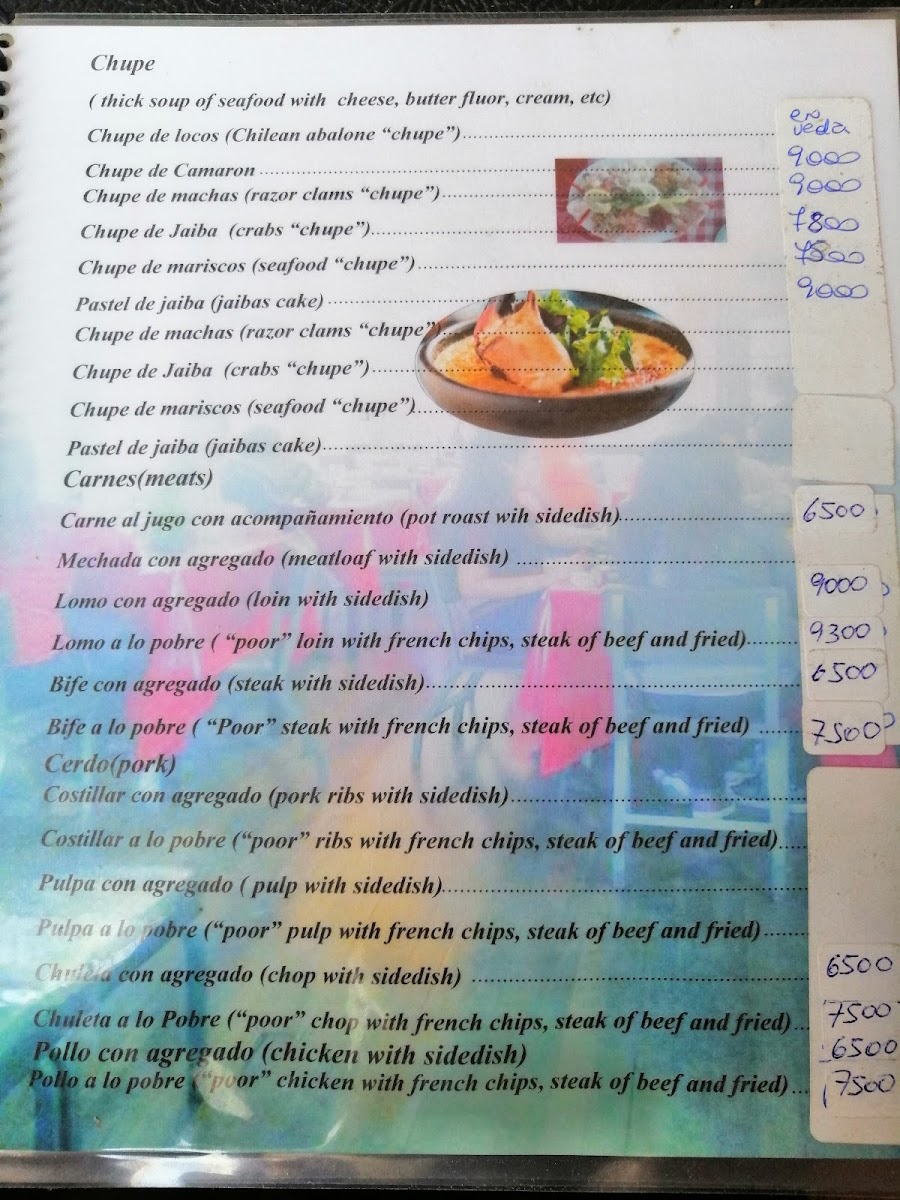 Chupe
( thick soup of seafood with cheese, butter fluor, cream, etc)
Chupe de locos (Chilean abalone “chupe”)........ en veda
Chupe de Camaron ........ 9000
Chupe de machas (razor clams “chupe”)........ 9000
Chupe de Jaiba (crabs “chupe”)........ 7800
Chupe de mariscos (seafood “chupe”)........ 7800
Pastel de jaiba (jaibas cake) ........ 9000
Chupe de machas (razor clams “chupe”)........
Chupe de Jaiba (crabs “chupe”)........
Chupe de mariscos (seafood “chupe”)........
Pastel de jaiba (jaibas cake)........
Carnes(meats)
Carne al jugo con acompañamiento (pot roast wih sidedish)........ 6500
Mechada con agregado (meatloaf with sidedish) ........
Lomo con agregado (loin with sidedish) 9000
Lomo a lo pobre ( “poor” loin with french chips, steak of beef and fried)........ 9300
Bife con agregado (steak with sidedish)........ 6500
Bife a lo pobre ( “Poor” steak with french chips, steak of beef and fried) ........ 7500
Cerdo(pork)
Costillar con agregado (pork ribs with sidedish)........
Costillar a lo pobre (“poor” ribs with french chips, steak of beef and fried)....
Pulpa con agregado ( pulp with sidedish)........
Pulpa a lo pobre (“poor” pulp with french chips, steak of beef and fried)........
Chuleta con agregado (chop with sidedish) ........ 6500
Chuleta a lo Pobre (“poor” chop with french chips, steak of beef and fried)... 7500
Pollo con agregado (chicken with sidedish) 6500
Pollo a lo pobre (“poor” chicken with french chips, steak of beef and fried)... 7500